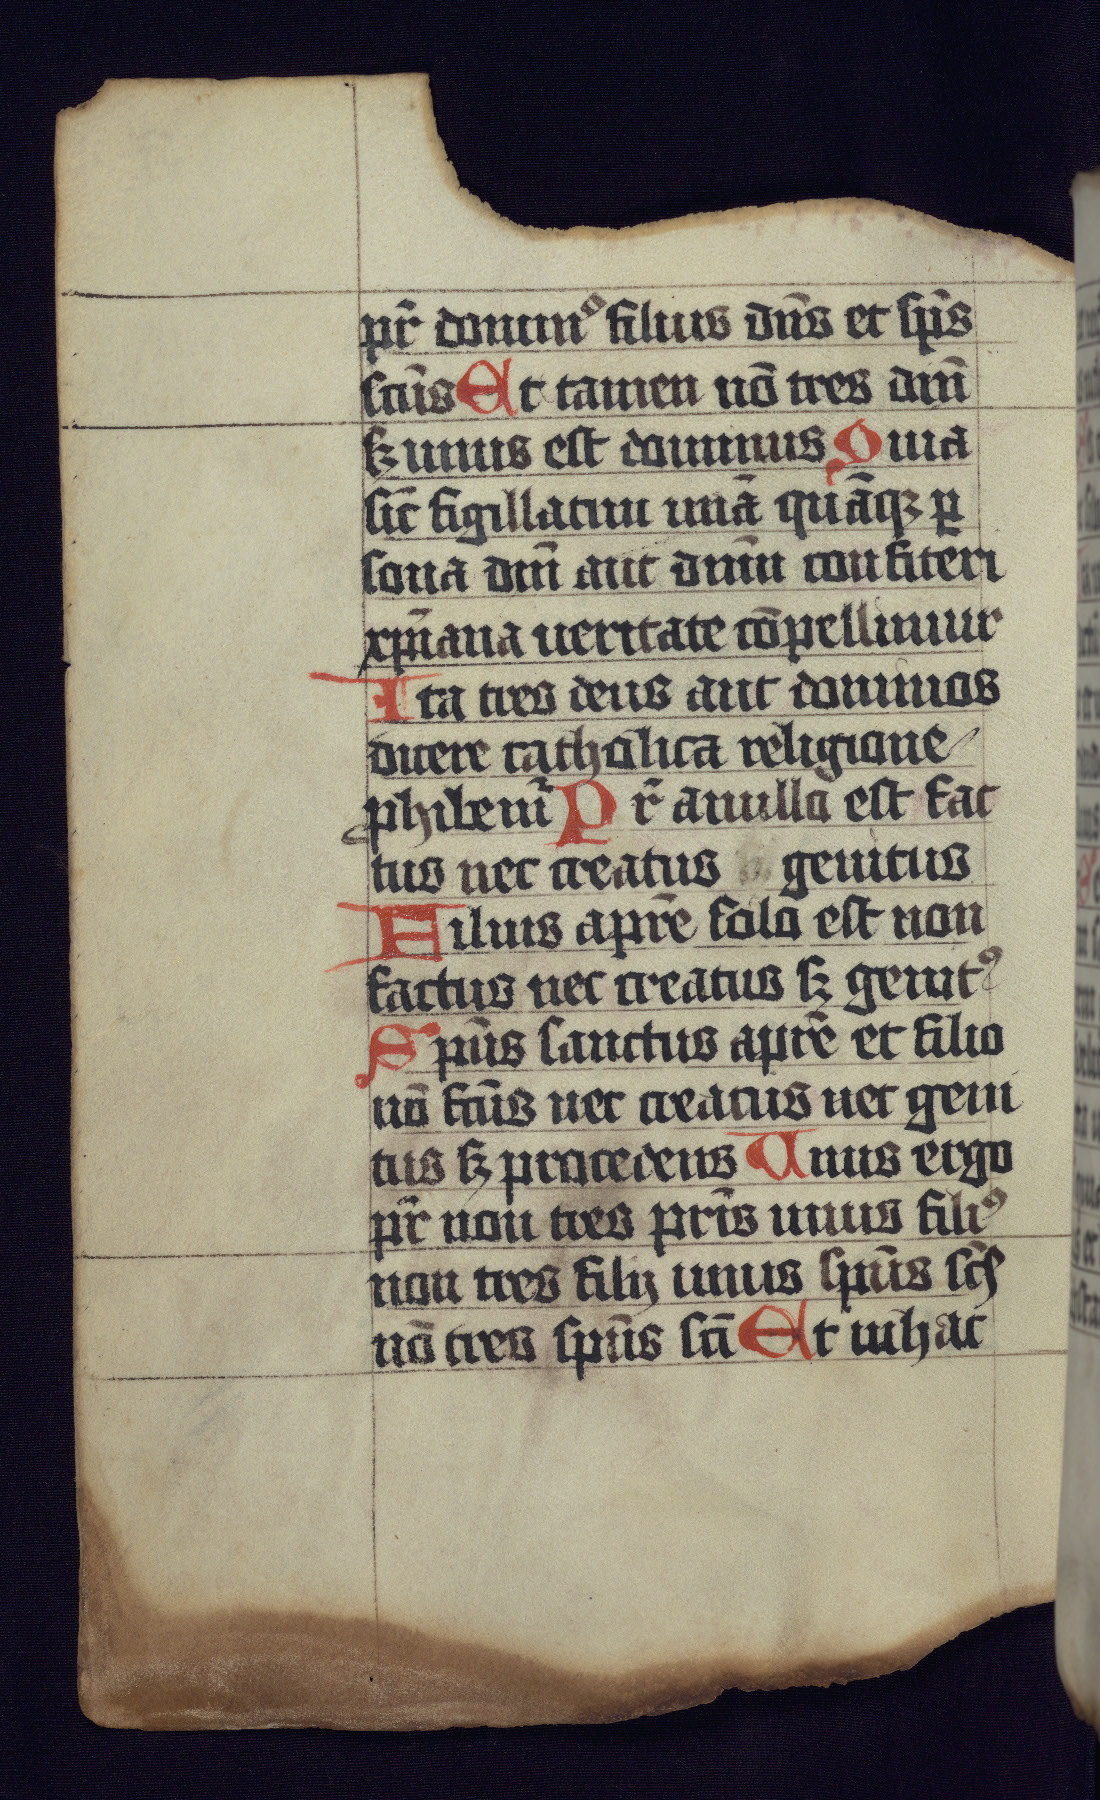 pr̄ domin⁹ filius dn̄s et sp̄s
sc̄us Et tamen nō tres dm̄
sꝫ unus est dominus Quia
sic̄ sigillatim unā quāqꝫ ꝑ
sona dm̄ aut dnm̄ confiteri
xpīana ueritate cōpellimur
Ita tres deus aut dominos
dicere catholica religione
phibem̄ Pr̄ a nullo est fac
tus nec creatus genitus
Filius apr̄e solo est non
factus nec creatus sꝫ genit⁹
Spūs sanctus apr̄e et filio
nō fc̄us nec creatus nec geni
tus sꝫ procedens Unus ergo
pr̄ non tres pr̄is unus fili⁹
non tres filij unus spūs sc̄s
nō tres spūs sc̄i Et in hac